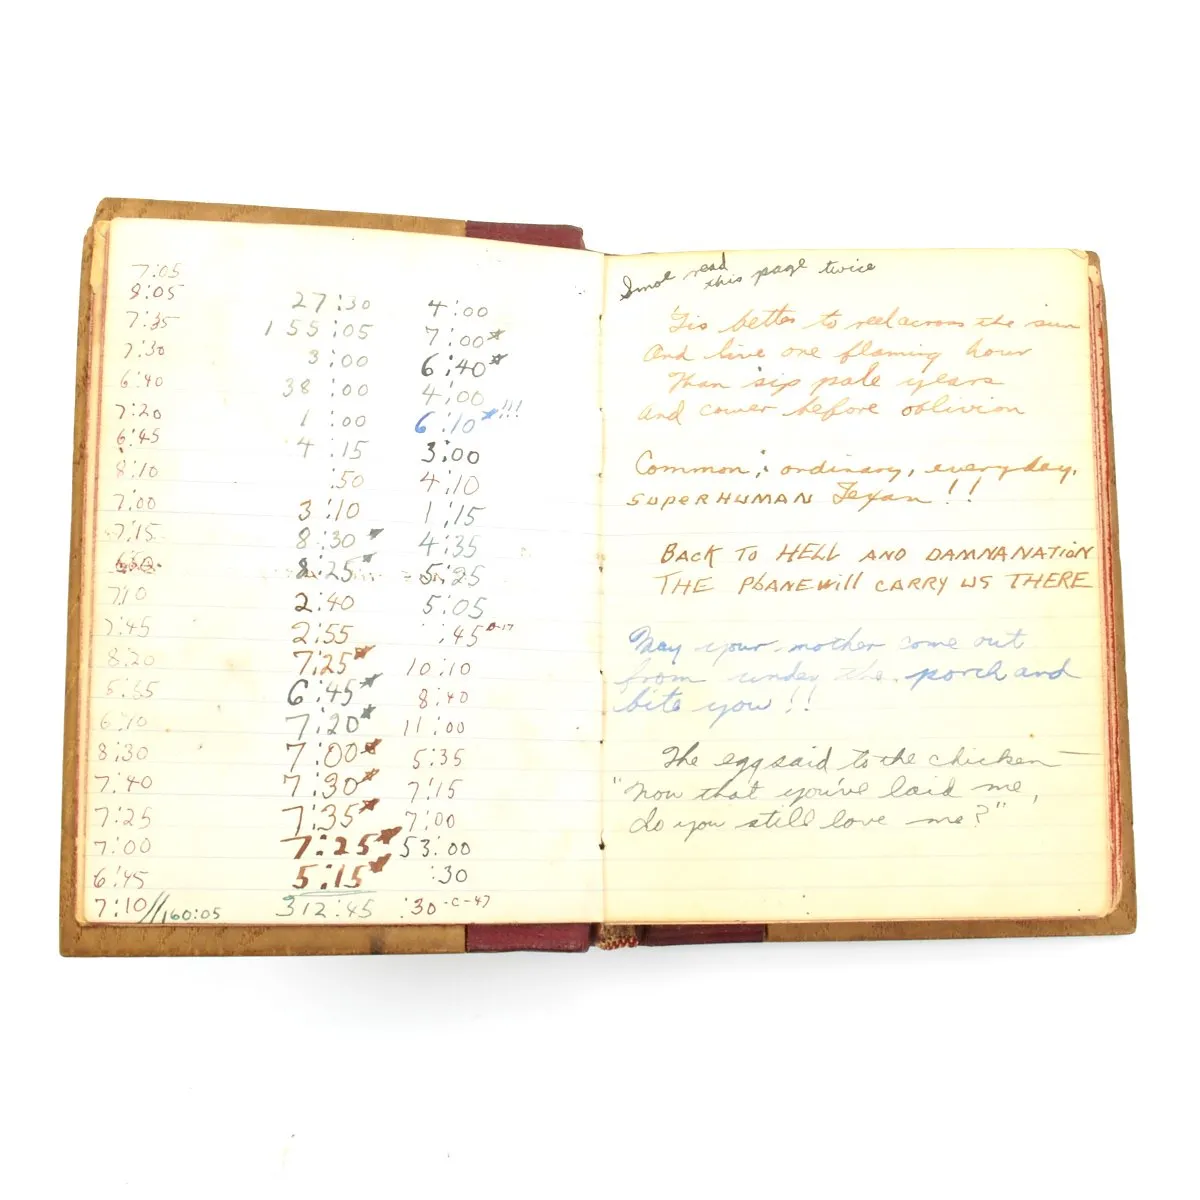 7:05
8:05
7:35
7:30
6:40
7:20
6:45
8:10
7:00
7:15
7:10
7:45
8:20
5:55
6:10
8:30
7:40
7:25
7:00
6:45
7:10 // 160:05
27:30
155:05
3:00
38:00
1:00
4:15
:50
3:10
8:30 *
8:25 *
2:40
2:55
7:25 *
6:45 *
7:20 *
7:00 *
7:30 *
7:35 *
7:25 *
5:15 *
312:45
4:00
7:00 *
6:40 *
4:00
6:10 * !!!
3:00
4:10
1:15
4:35
5:25
5:05
:45 B-17
10:10
8:40
11:00
5:35
7:15
7:00
53:00
:30
:30 -C-47
read
this page twice
'Tis better to reel across the sun
And live one flaming hour
Than six pale years
And cower before oblivion
Common, ordinary, everyday,
SUPERHUMAN Texan!!
BACK TO HELL AND DAMNANATION
THE PLANE WILL CARRY US THERE
May your mother come out
from under the porch and
bite you!!
The egg said to the chicken—
"Now that you've laid me,
do you still love me?"